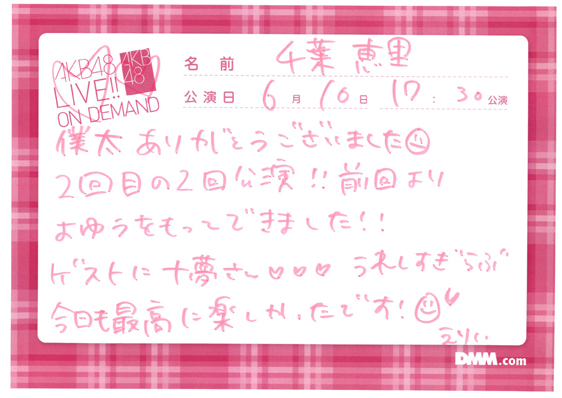 AKB48
LIVE!!
ON DEMAND
AKB
48
名前 千葉 恵里
公演日 6月10日 17:30公演
僕太ありがとうございました
2回目の2回公演!!前回より
よゆうをもってできました!!
ゲストに十夢さん♡♡♡ うれしすぎらぶ
今日も最高に楽しかったです!
えりい
DMM.com